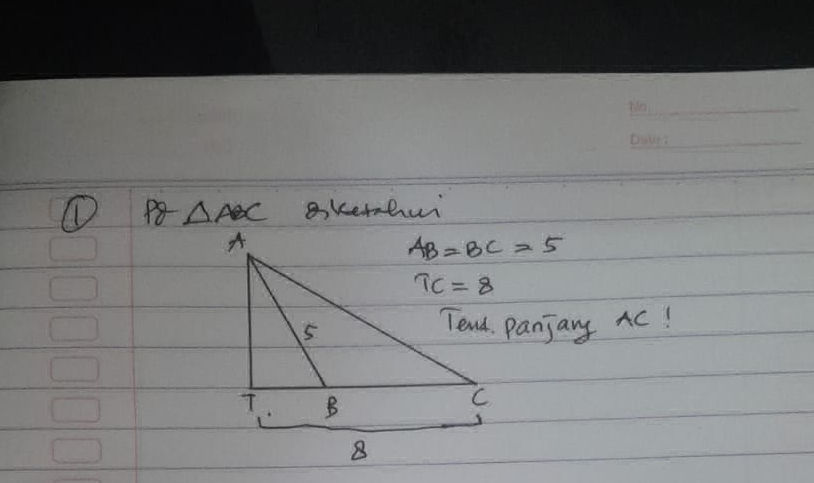 No
Date:
① Pd △ABC diketahui
A
AB = BC = 5
TC = 8
Tent. panjang AC !
5
T. B C
8